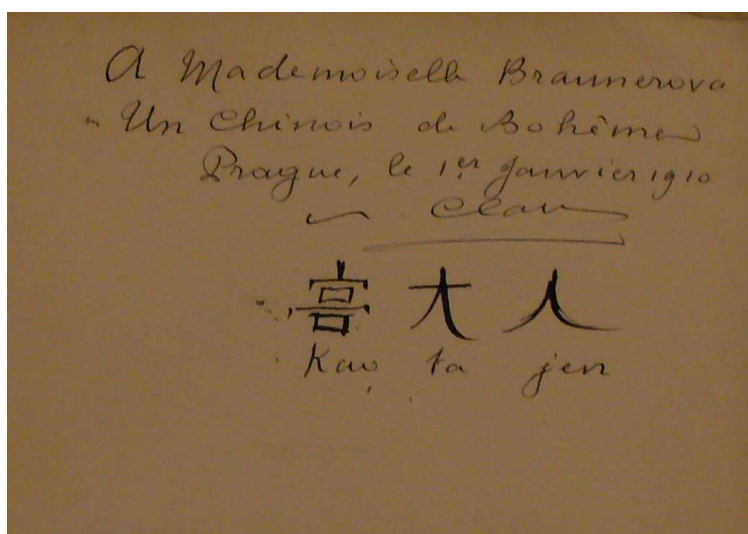 A Mademoiselle Braunerova
Un Chinois de Bohême
Prague, le 1er Janvier 1910
高大人
Kao ta jen